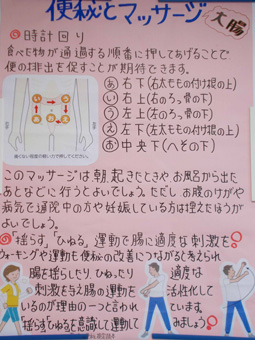 便秘とマッサージ
大腸
◎時計回り
食べた物が通過する順番に押してあげることで
便の排出を促すことが期待できます。
あ 右下(右太ももの付け根の上)
い 右上(右のろっ骨の下)
う 左上(左のろっ骨の下)
え 左下(左太ももの付け根の上)
お 中央下(へその下)
い
う
あ
お
え
痛くない程度の軽い力で押してください
このマッサージは朝、起きたときや お風呂から出た
あとなどに行うとよいでしょう。ただし お腹のけがや
病気で通院中の方や妊娠している方は控えたほうが
よいでしょう。
◎"揺らす""ひねる"運動で腸に適度な刺激を
ウォーキングや運動も便秘の改善につながると考えられ
腸を揺らしたり、ひねったり 適度な
刺激を与え腸の運動を 活性化して
いるのが理由の一つと言われ ています。
揺らす、ひねるを意識して運動して みましょう